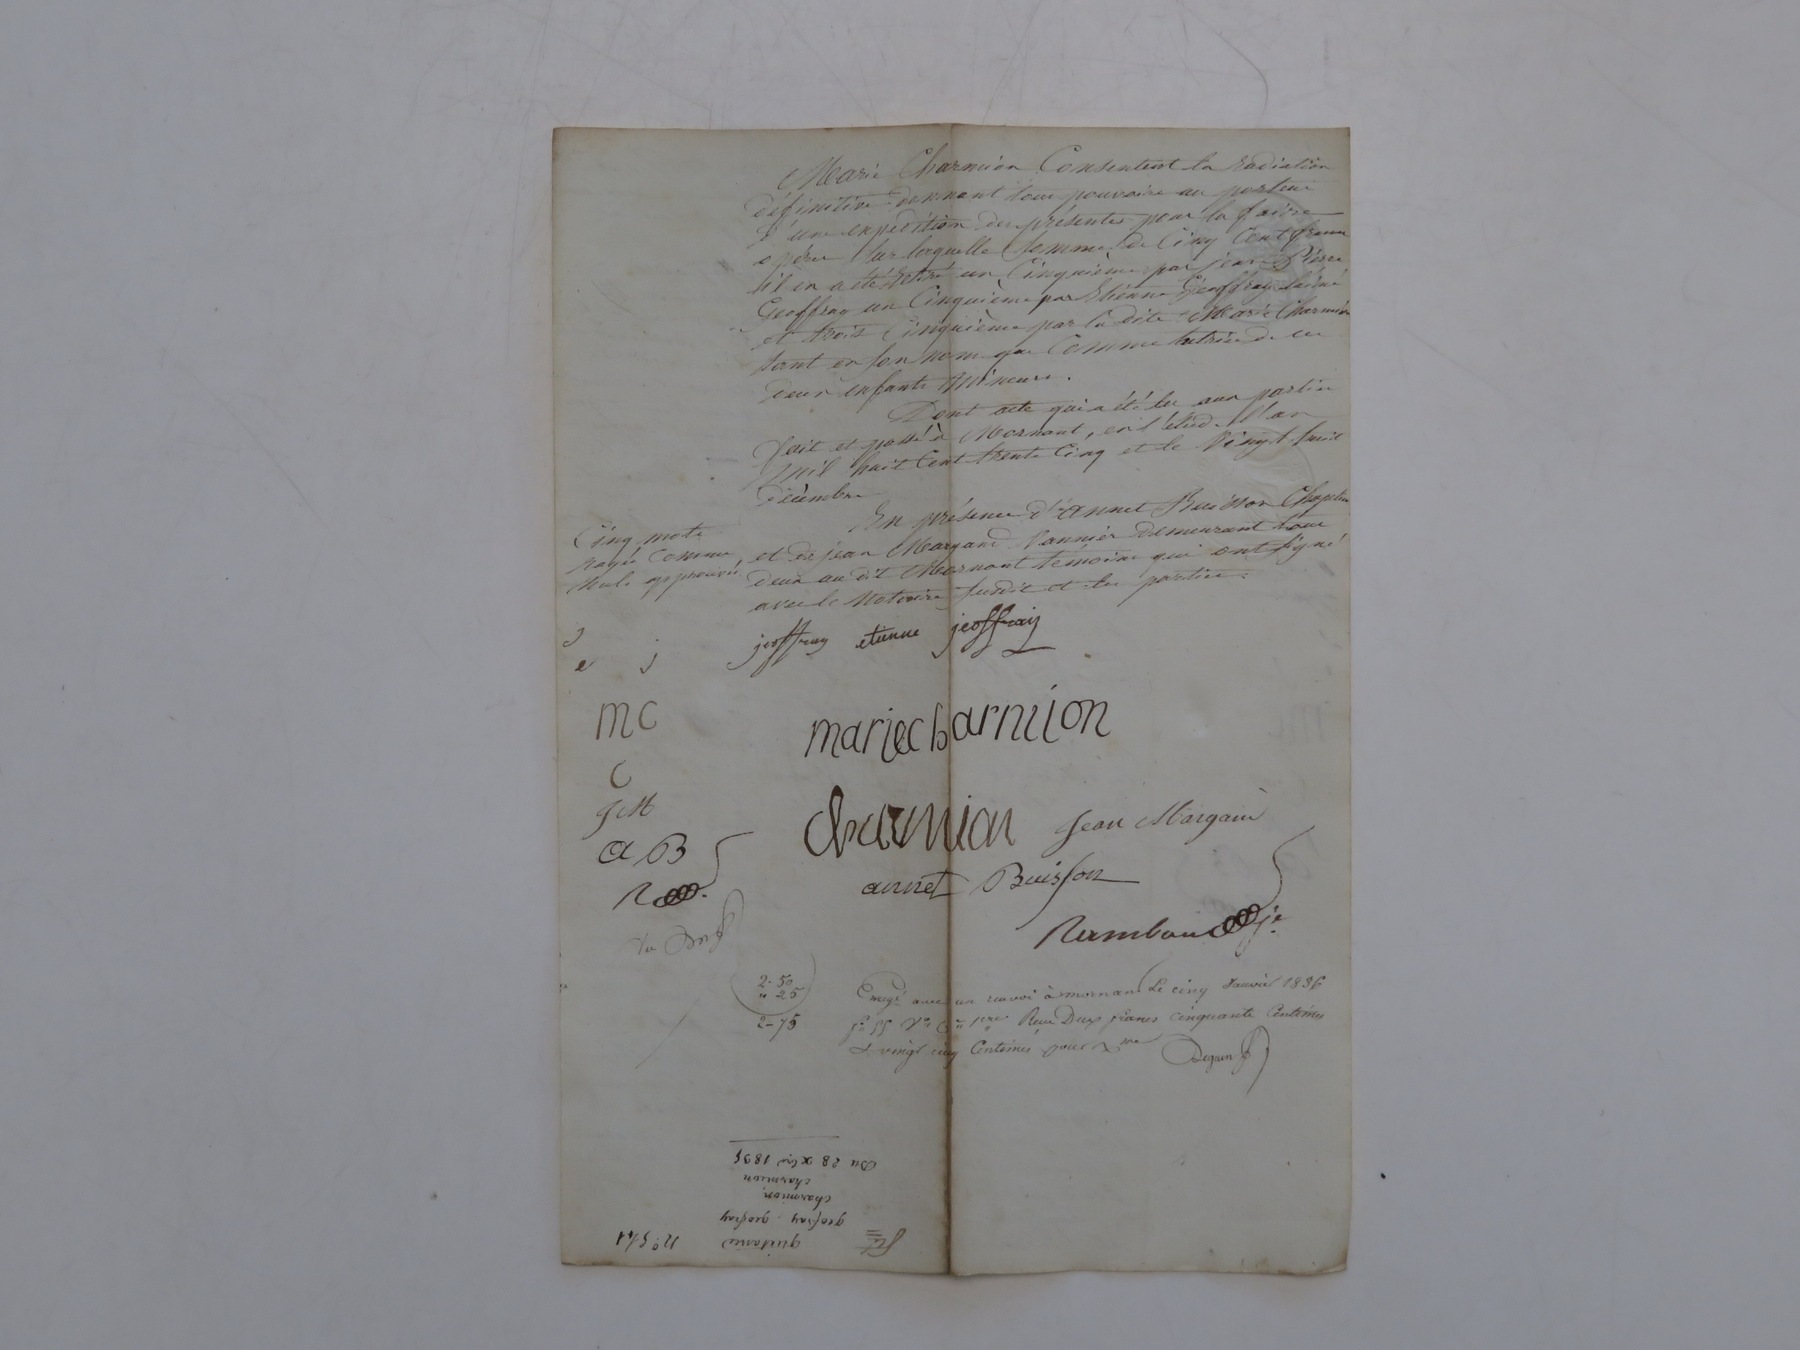 Marie Charmion Consentent la Radiation
définitive donnant tour pouvoire au porteur
d'une expédition des présentes pour la faire
opérer sur laquelle somme de Cinq Cent franc
il en a été retiré un Cinquième par jean Pierre
Geoffray un Cinquième par Etienne Geoffray l'ainé
et trois Cinquième par la dite Marie Charmion
tant en son nom que Comme tutrice de ses
deux enfants Mineurs.
Dont acte qui a été lu aux parties
fait et passé à Mornant, en l'étude. L'an
Mil huit Cent trente Cinq et le Vingt huit
décembre
En présence d'annet Buisson Chapelier
et de jean Margand Vannier demeurant tour
deux au dit Mornant témoins qui ont signé
avec le Notaire susdit et les parties.
Cinq mots
rayés Comme
Nuls approuvés
jeoffray etienne jeoffray
J
e j
MC
mariecharmion
C
JM
charmion Jean Margand
a B
annet Buisson
R
Rambaud
2-50
" 25
2-75
Enregé avec un renvoi à mornant Le cinq Janvier 1836
fo 55 Vo Cse pre Reçu Deux francs cinquante Centimes
& vingt cinq Centimes pour Xme
no 541
quittance
geofray geofray
charmion
charmion
Du 28 xbre 1835